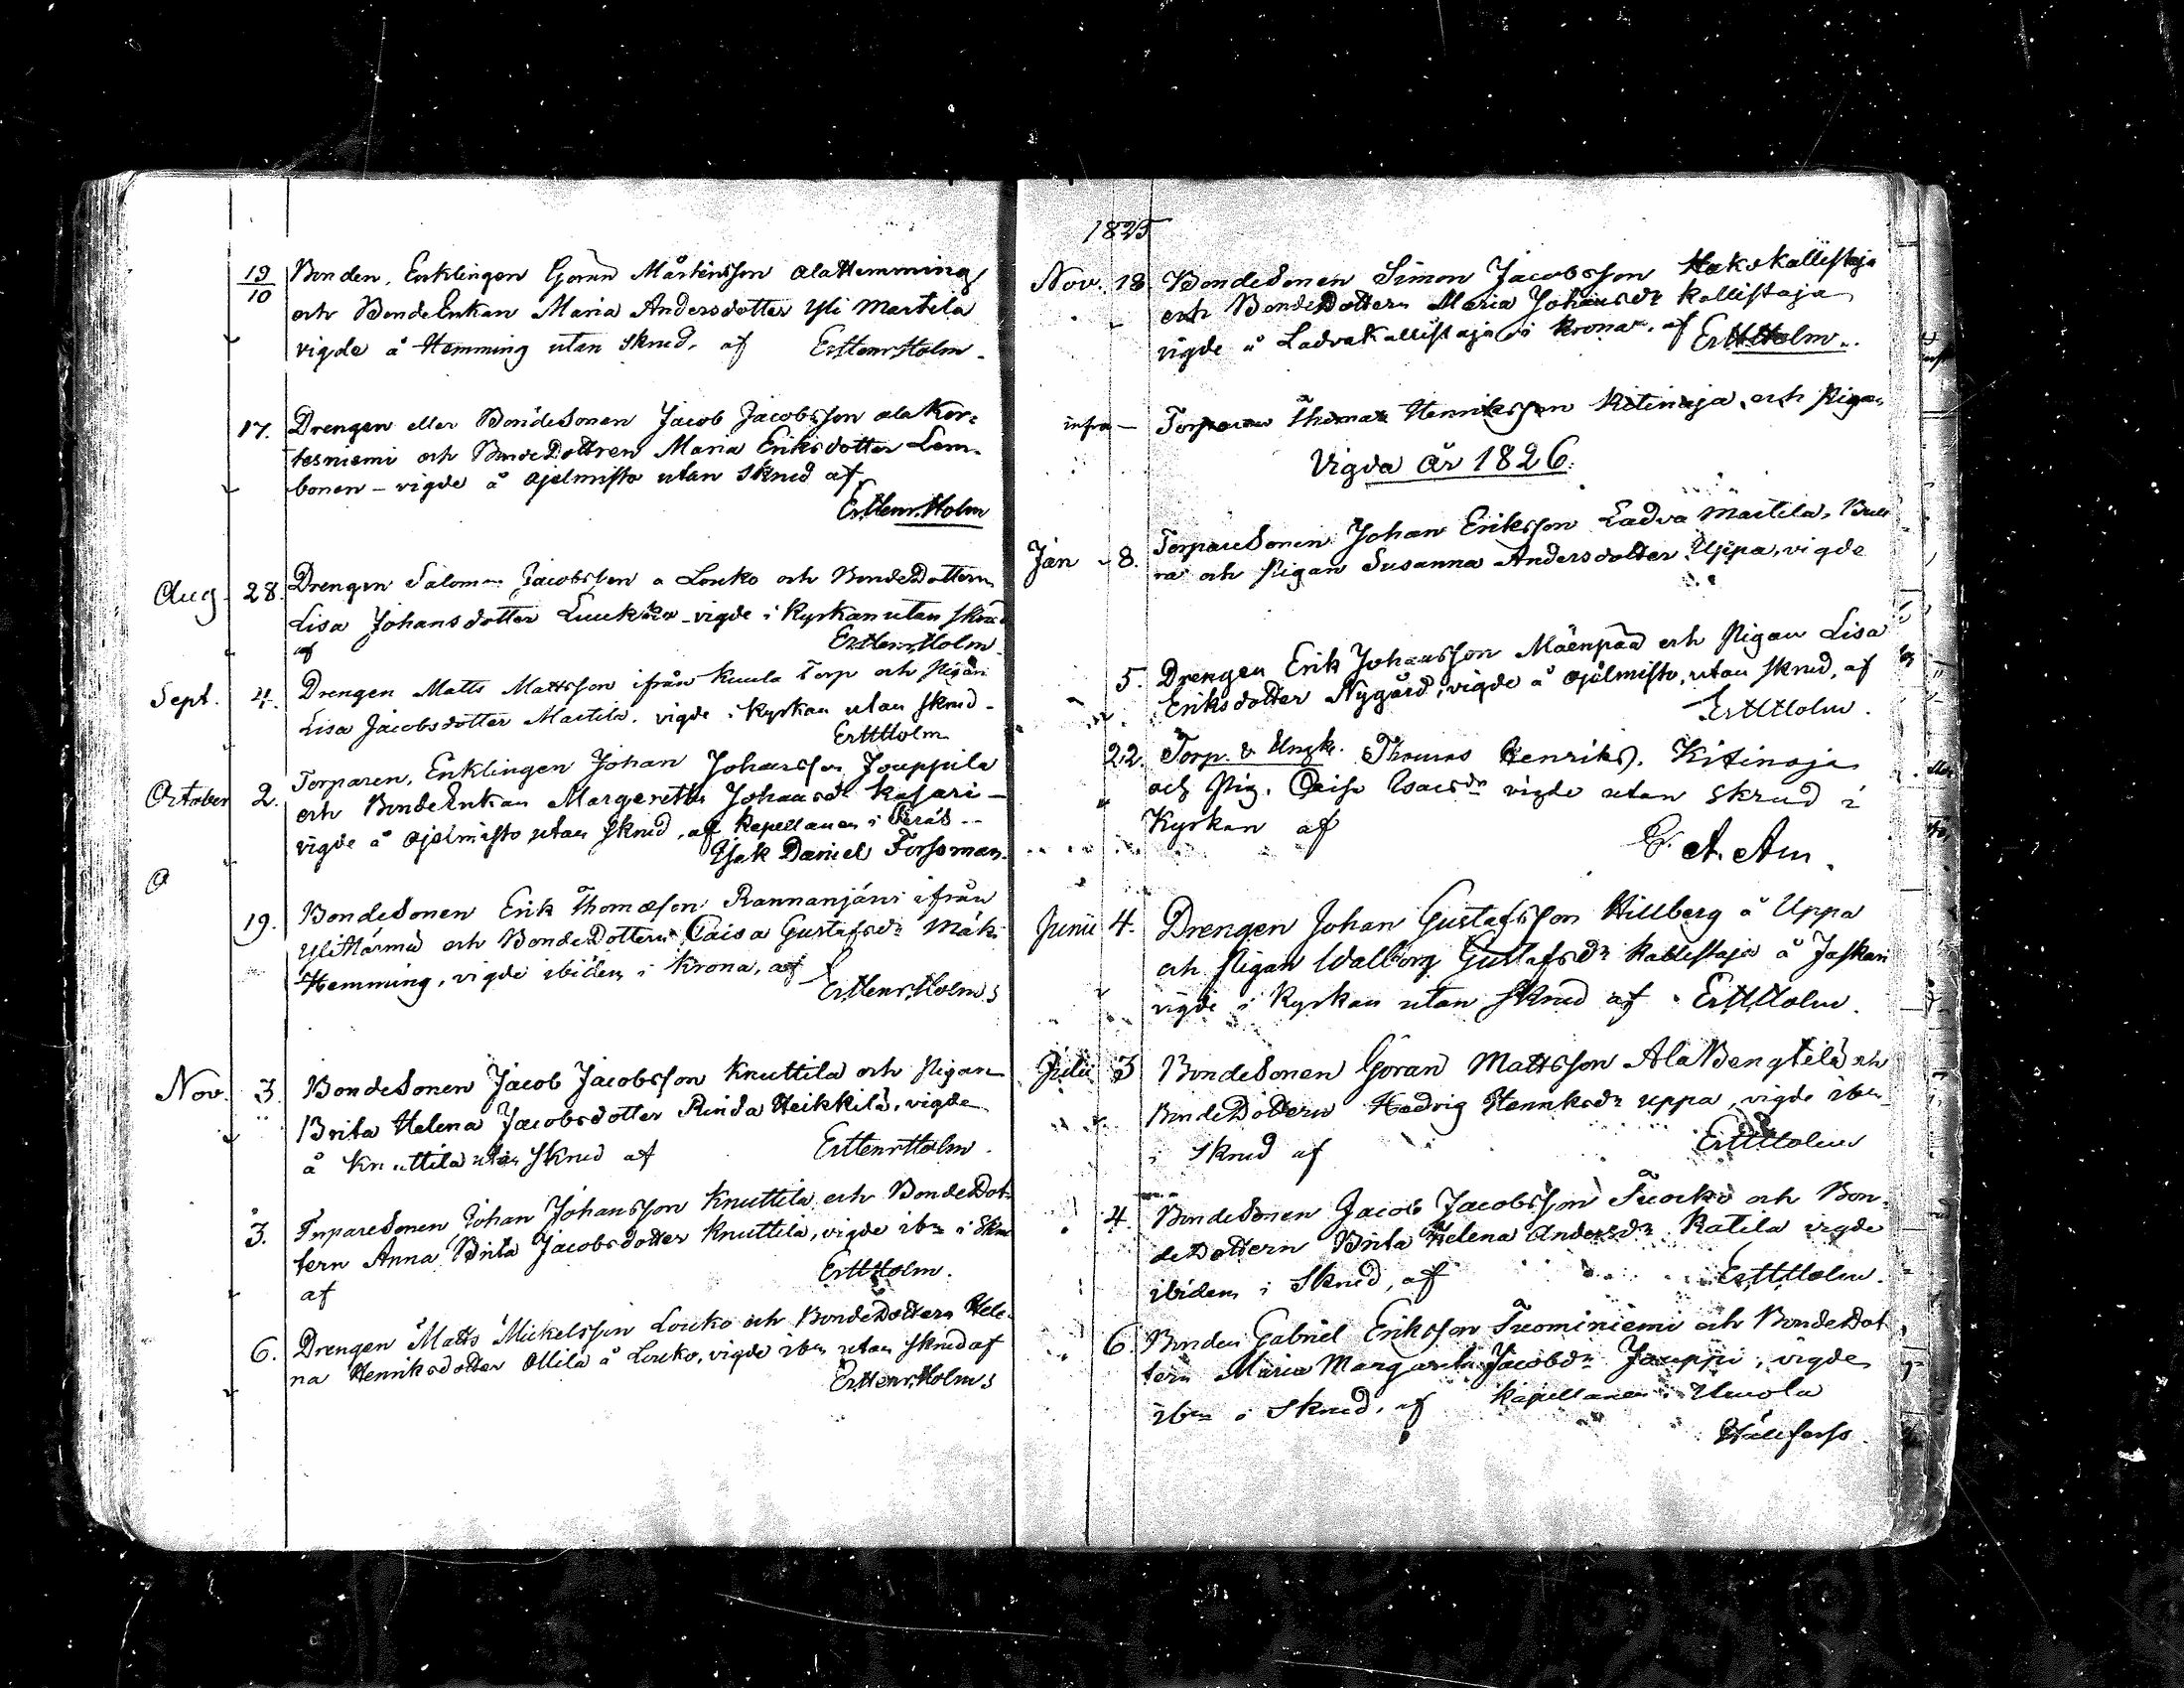 19/10 Bonden, Enklingen Göran Mårtensson AlaHemming
och BondeEnkan Maria Andersdotter Yli Martila
vigde å Hemming utan skrud, af ErHenrHolm
17. Drengen eller BondeSonen Jacob Jacobsson ala Kor=
tesniemi och BondeDottren Maria Eriksdotter Lem=
bonen - vigde å Ojelmisto utan skrud af
ErHenrHolm
Aug. 28. Drengen Salomon Jacobsson a Louko och BondeDottern
Lisa Johansdotter - vigde i Kyrkan utan skrud
af ErHenrHolm
Sept. 4. Drengen Matts Mattsson ifrån Kuula Torp och Pigan
Lisa Jacobsdotter Martila, vigde i Kyrkan utan skrud -
ErHHolm
October 2. Torparen, Enklingen Johan Johansson Jouppila
och BondeEnkan Margeretha Johansdr Kasari -
vigde å Ojelmisto utan skrud, af Kapellanen i
Isak Daniel Forssman
O
19. BondeSonen Erik Thomasson Rannanjärvi ifrån
YliHärmä och BondeDottern Caisa Gustafsdr Mäki
Hemming, vigde ibidem i Krona, af
ErHenrHolm
Nov. 3. BondeSonen Jacob Jacobsson Knuttila och Pigan
Brita Helena Jacobsdotter Rinda Heikkilä, vigde
å Knuttila utan skrud af ErHenrHolm
3. TorpareSonen Johan Johansson Knuttila och BondeDot=
tern Anna Brita Jacobsdotter Knuttila, vigde ibm i Skrud
af ErHHolm.
6. Drengen Matts Mickelsson Louko och BondeDottern Hele=
na Henriksdotter Ollila å Louko, vigde ibm utan skrud af
ErHenrHolm
1825
Nov. 18 BondeSonen Simon Jacobsson Kallistaja
och BondeDottern Maria Johansdr Kallistaja
vigde å LadvaKallistaja i Krona, af ErHHolm.
infra - Torparen Thomas Henriksson Kitinoja och Pigan
Vigda År 1826.
Jan 8. TorpareSonen Johan Eriksson Ladva Martila,
och Pigan Susanna Andersdotter Uppa, vigde
5. Drengen Erik Johansson Mäenpää och Pigan Lisa
Eriksdotter Nygård, vigde å Ojelmisto, utan skrud, af
ErHHolm.
22. Torp. & Ungk. Thomas Henriks. Kitinoja
och Pig. Caisa Isacsdr vigde utan skrud i
Kyrkan af
Junii 4. Drengen Johan Gustafsson Hillberg å Uppa
och Pigan Walborg Gustafsdr Kallistaja å Jaskari
vigde i Kyrkan utan skrud af ErHHolm.
Julii 3 BondeSonen Göran Mattsson AlaBengtilä och
BondeDottern Hedvig Henriksdr Uppa, vigde ibm
i skrud af ErHHolm
4. BondeSonen Jacob Jacobsson Tuorko och Bon=
deDottern Brita Helena Andersdr Ratila vigde
ibidem i Skrud, af ErHHolm.
6. Bonden Gabriel Eriksson Tuominiemi och BondeDot
tern Maria Margareta Jacobsdr Jauppi, vigde
ibm i Skrud, af Kapellanen i
Hällfors